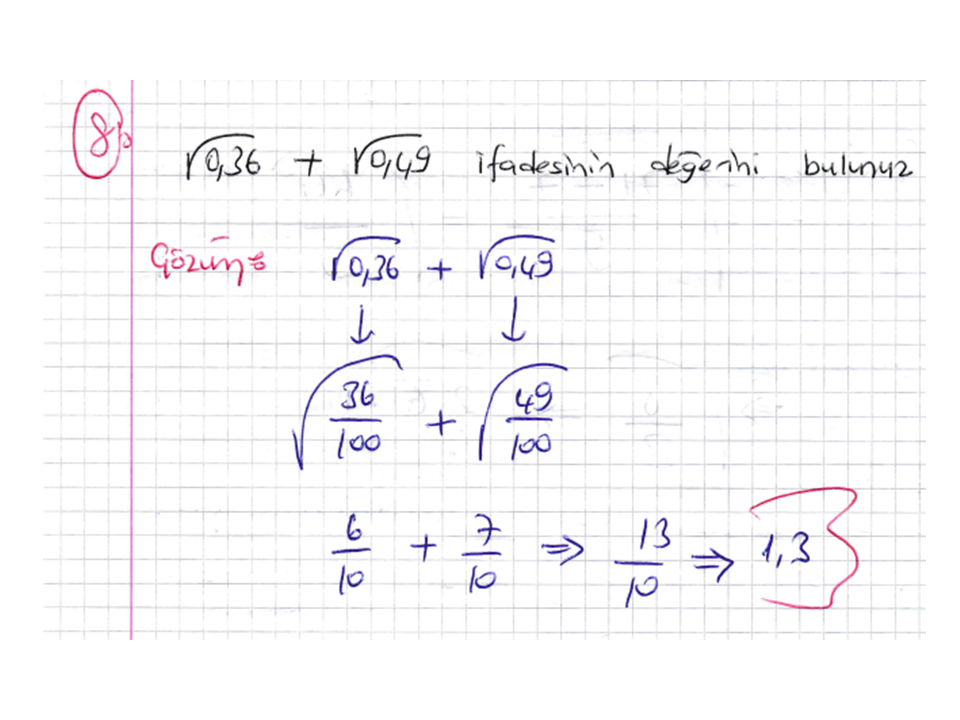 8) √0,36 + √0,49 ifadesinin değerini bulunuz
Çözüm: √0,36 + √0,49
↓ ↓
√(36/100) + √(49/100)
6/10 + 7/10 ⇒ 13/10 ⇒ 1,3